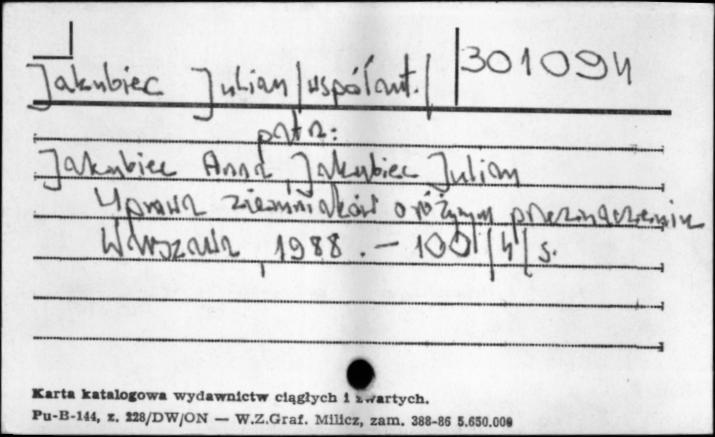 301094
Jakubiec Julian /współaut./
patrz:
Jakubiec Anna, Jakubiec Julian
Uprawa ziemniaków o różnym przeznaczeniu
Warszawa, 1988. – 100 /4/ s.
Karta katalogowa wydawnictw ciągłych i zwartych.
Pu-B-144, z. 228/DW/ON — W.Z.Graf. Milicz, zam. 388-86 5.650.000